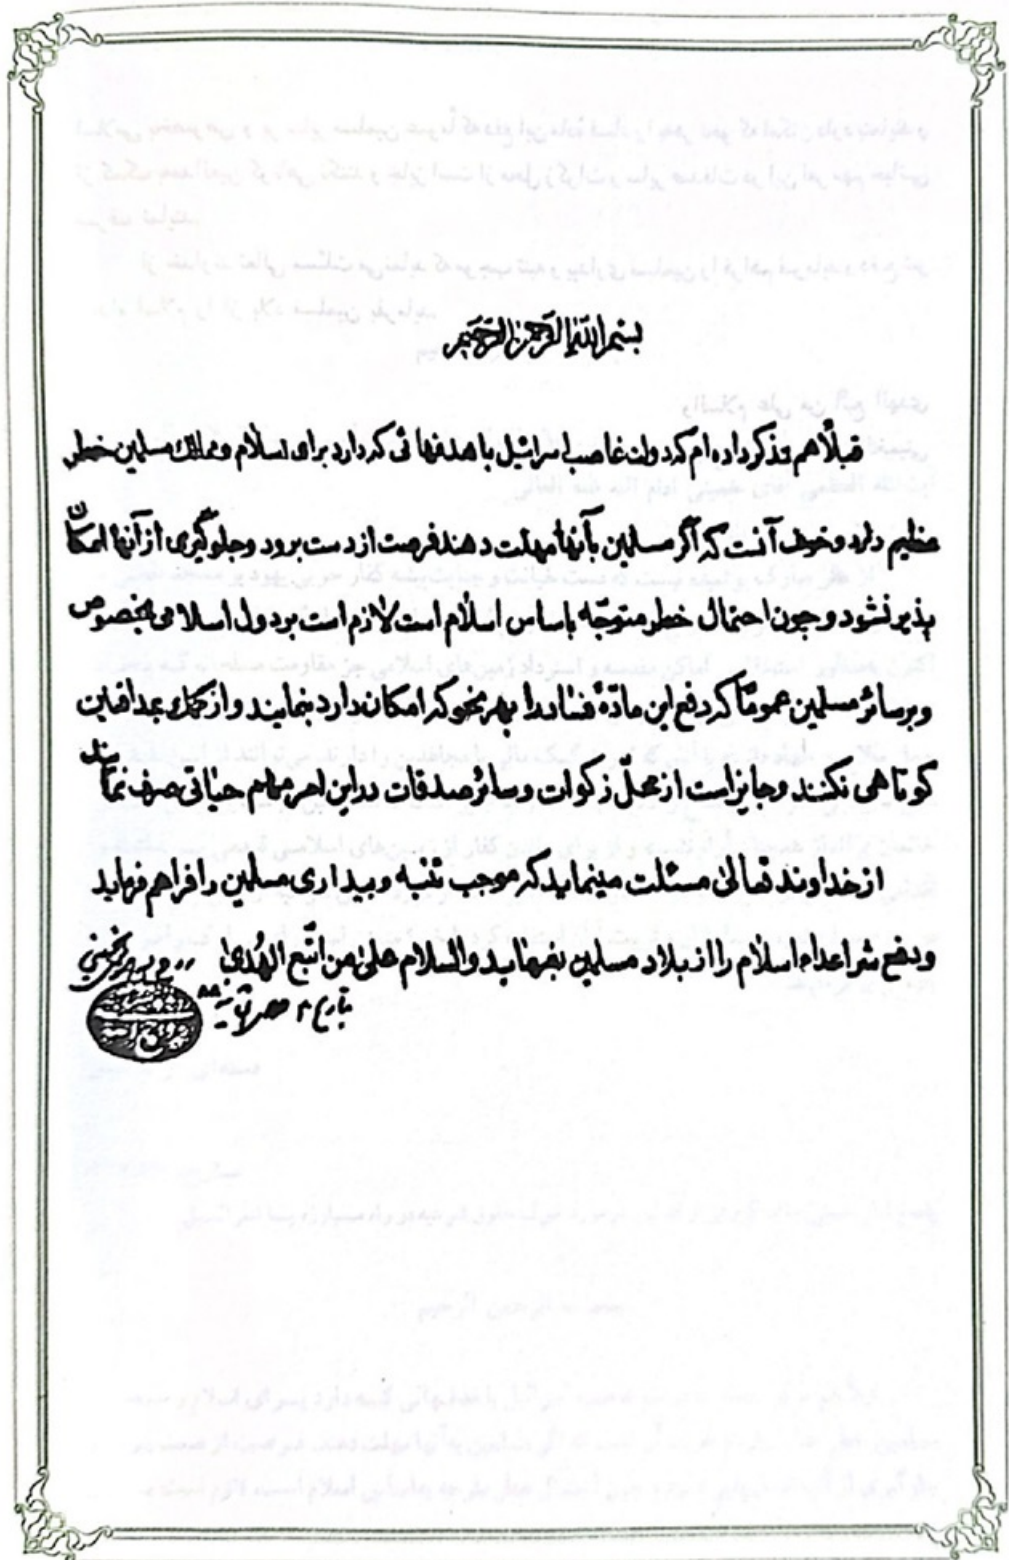 بسم الله الرحمن الرحیم
قبلاً هم تذکر داده ام که دولت غاصب اسرائیل با هدفهائی که دارد برای اسلام و ممالک مسلمین خطر
عظیم دارد و خوف آنست که اگر مسلمین بآنها مهلت دهند فرصت از دست برود و جلوگیری از آنها امکان
پذیر نشود و چون احتمال خطر متوجّه باساس اسلام است لازم است بر دول اسلامی بخصوص
و بر سائر مسلمین عموماً که دفع این مادّهٔ فساد را بهر نحو که امکان دارد بنمایند و از کمک بمدافعین
کوتاهی نکنند و جایز است از محلّ زکوات و سائر صدقات در این امر مهم حیاتی صرف نمایند
از خداوند تعالی مسئلت مینماید که موجب تنبه و بیداری مسلمین را فراهم فرماید
و دفع شر اعداء اسلام را از بلاد مسلمین بفرماید والسلام علی من اتّبع الهُدی
بتاریخ